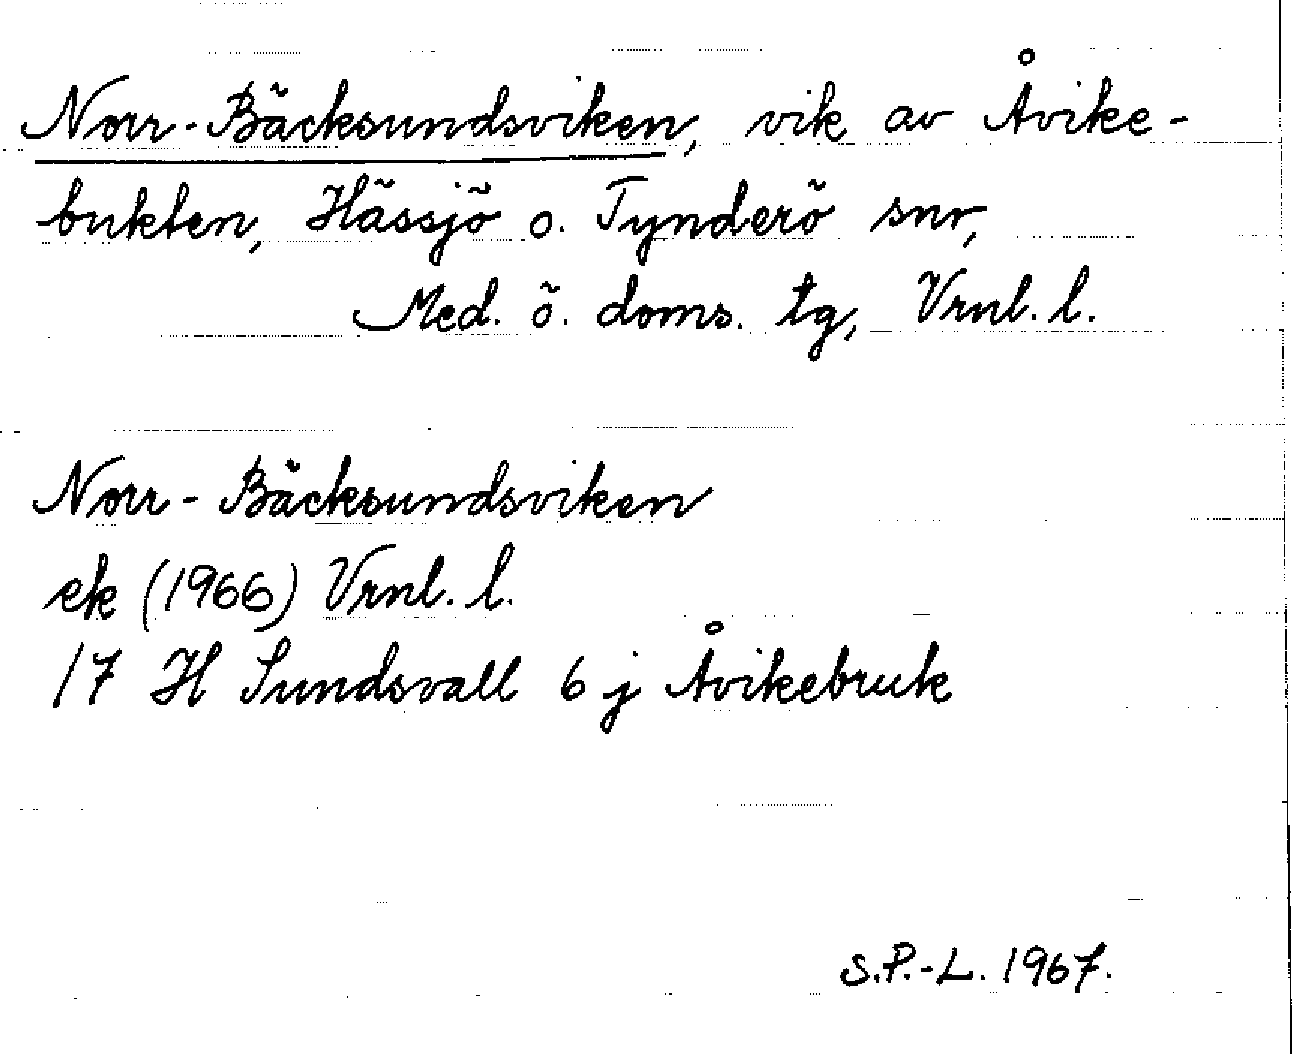 Norr-Bäcksundsviken, vik av Åvike-
bukten, Hässjö o. Tynderö snr,
Med. ö. doms. tg, Vrnl. l.
Norr-Bäcksundsviken
ek (1966) Vrnl. l.
17 H Sundsvall 6 j Åvikebruk
S.P.-L. 1967.